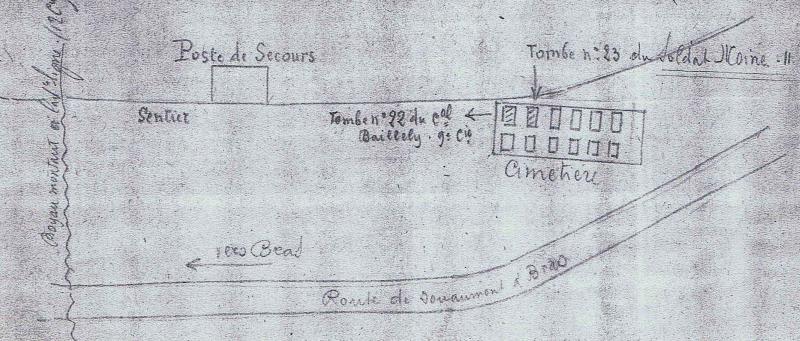 Poste de Secours
Tombe n° 23 du Soldat Moine
Sentier
Tombe n° 22 du Cal
Baillely. 9e Cie
Cimetiere
Boyau montant en ligne
vers Bras
Route de Douaumont à Bras